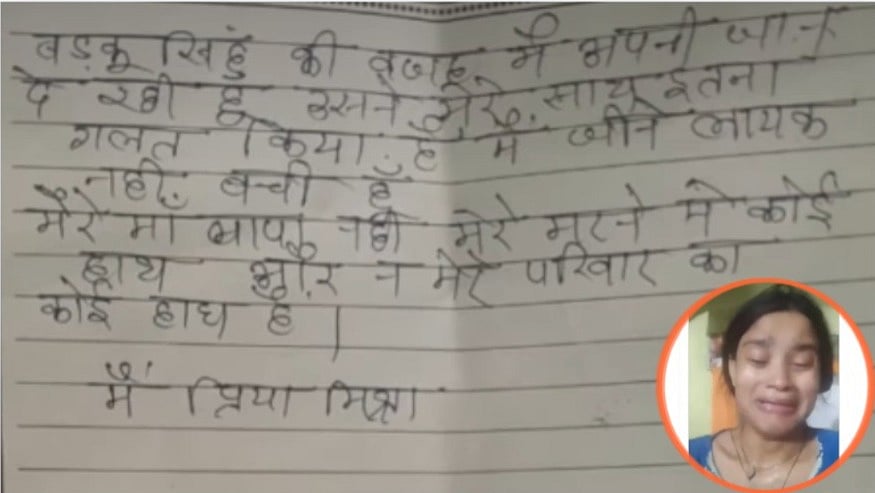 बड़कू सिंह की वजह मैं अपनी जान
दे रही हूँ उसने मेरे साथ इतना
गलत किया है मैं जीने लायक
नहीं बची हूँ
मेरे माँ बाप नही मेरे मरने मे कोई
हाथ और न मेरे परिवार का
कोई हाथ है।
मैं प्रिया मिश्रा